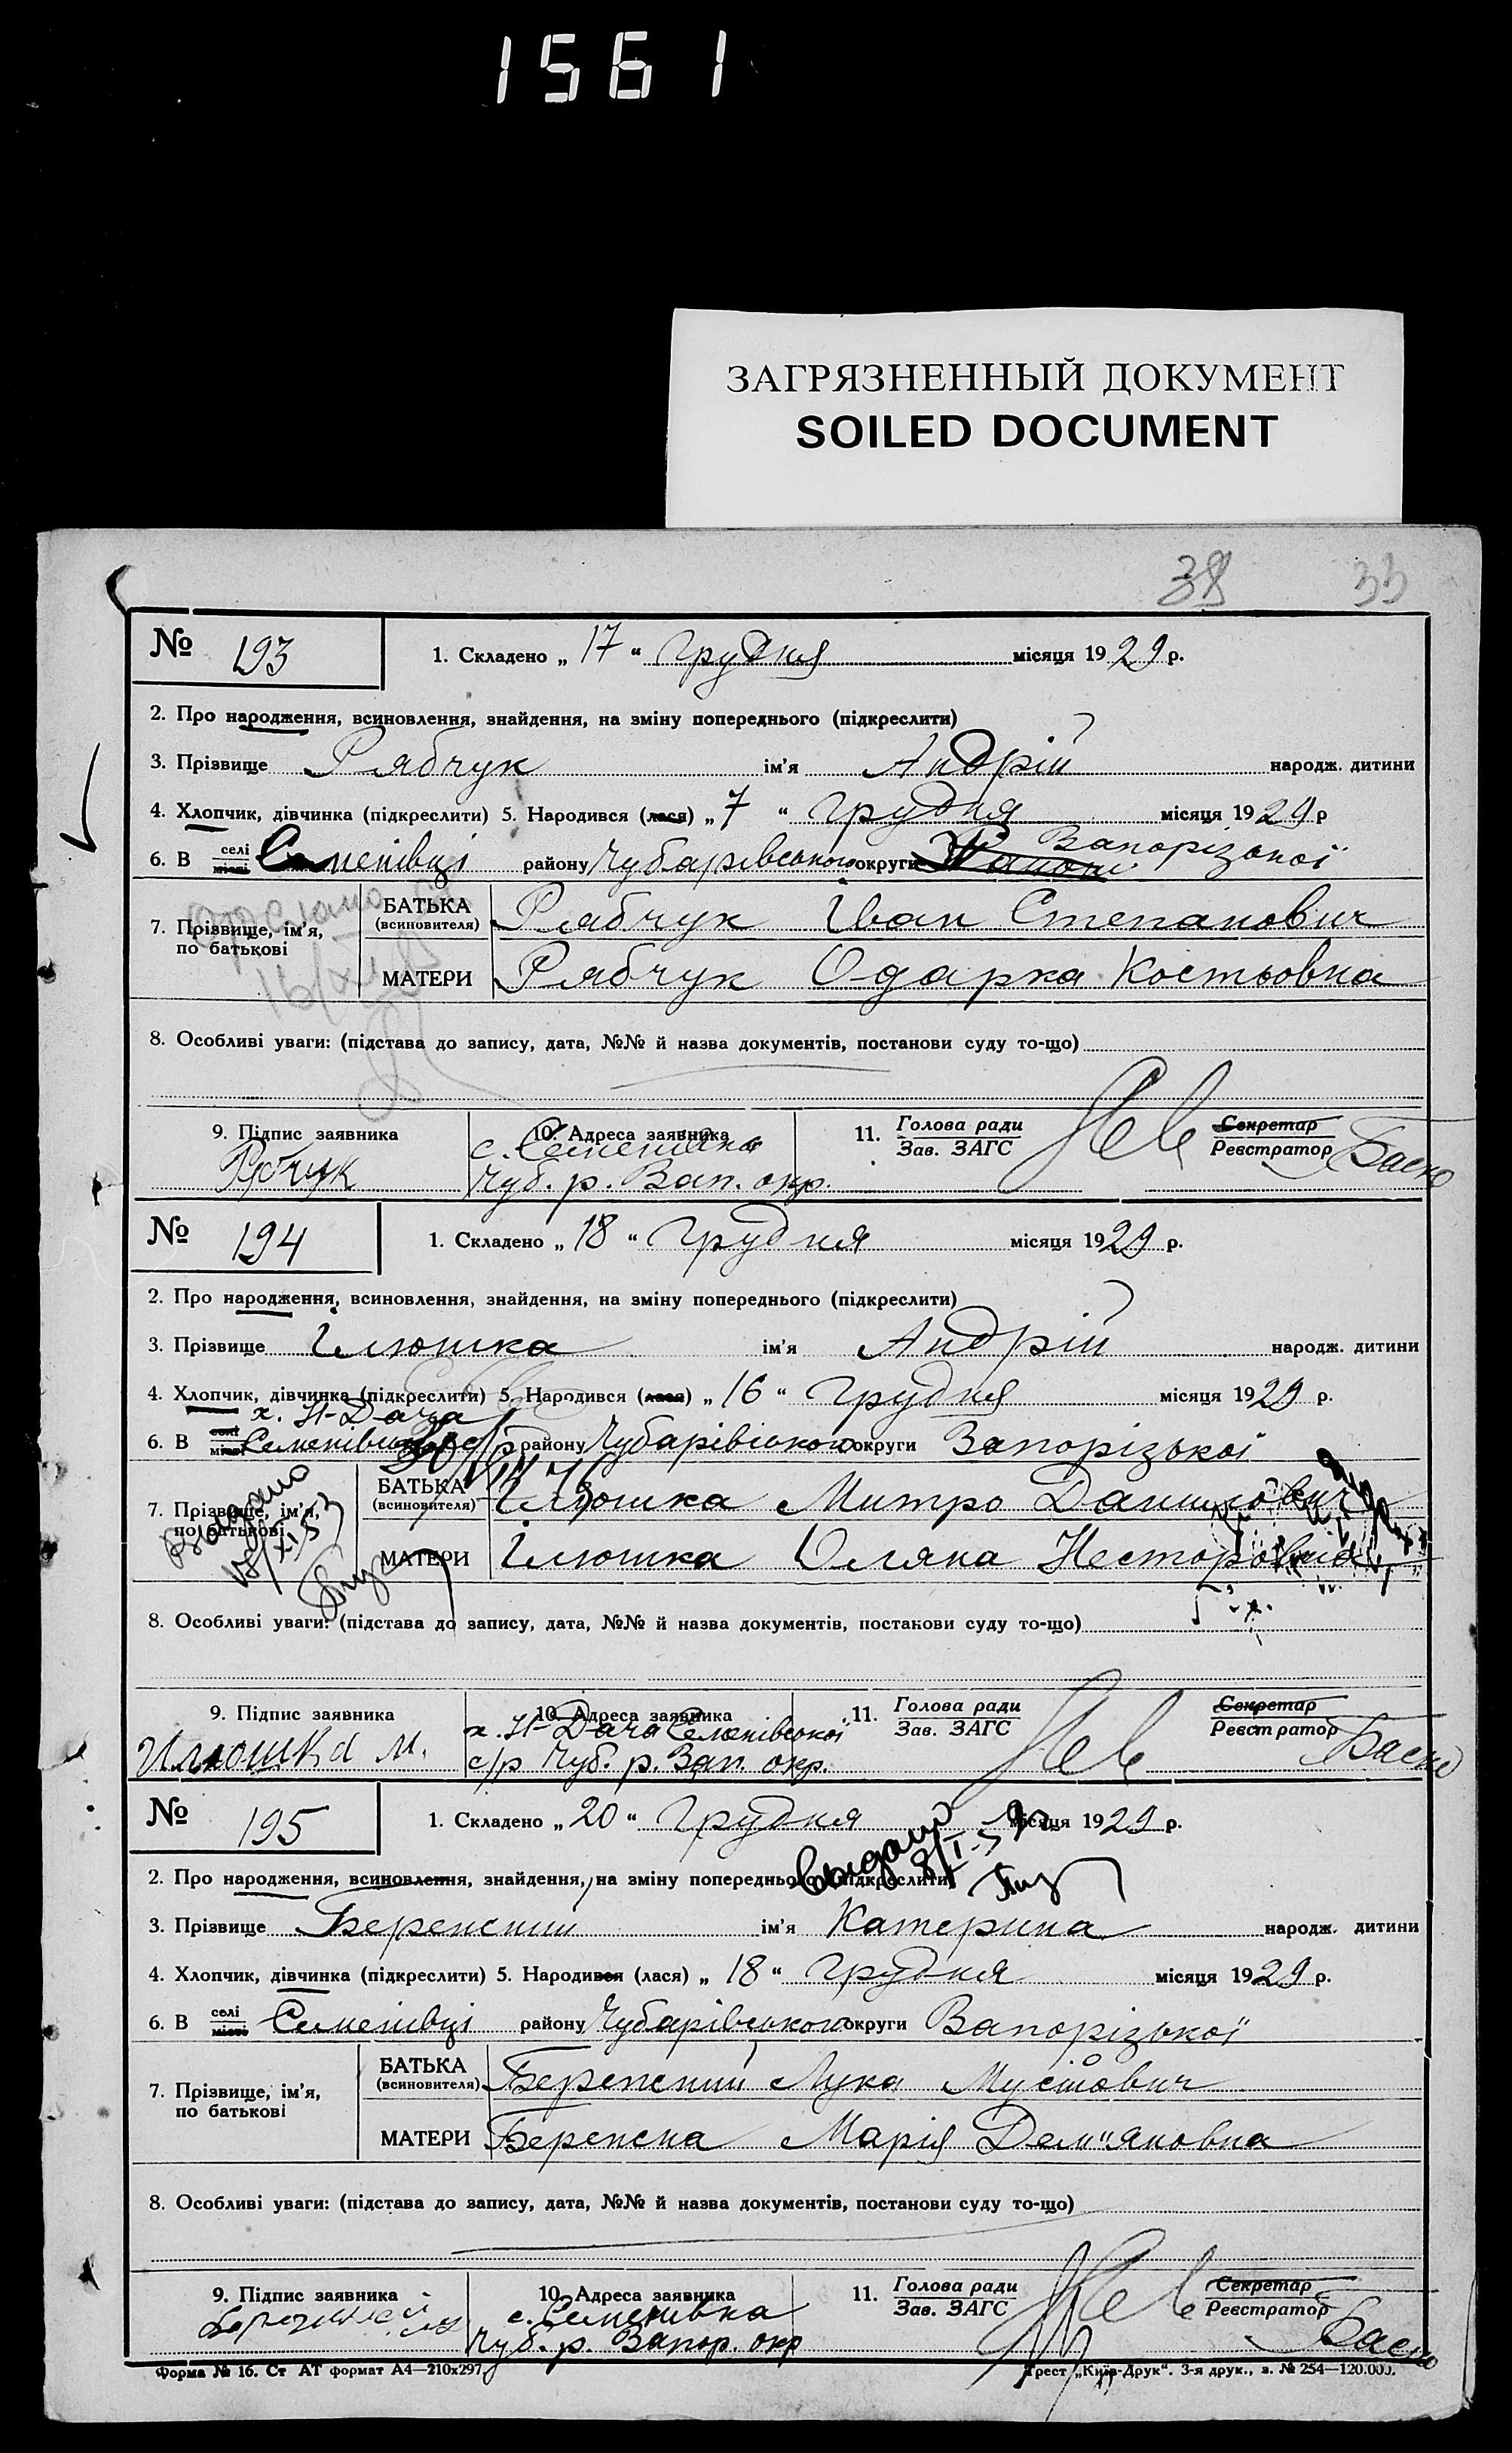 1561
ЗАГРЯЗНЕННЫЙ ДОКУМЕНТ
SOILED DOCUMENT
38 33
№ 193 1. Складено „ 17 “ грудня місяця 1929 р.
2. Про народження, всиновлення, знайдення, на зміну попереднього (підкреслити)
3. Прізвище Рябчук ім'я Андрій народж. дитини
4. Хлопчик, дівчинка (підкреслити) 5. Народився (лася) „ 7 “ грудня місяця 1929 р
6. В селі місті Семенівці району Чубарівського округи Запорізької
7. Прізвище, ім'я, по батькові
БАТЬКА (всиновителя) Рябчук Іван Степанович
МАТЕРИ Рябчук Одарка Костьовна
8. Особливі уваги: (підстава до запису, дата, №№ й назва документів, постанови суду то-що)
9. Підпис заявника 10. Адреса заявника 11. Голова ради Зав. ЗАГС Секретар Реєстратор
с. Семенівка
Чуб. р. Зап. окр.
№ 194 1. Складено „ 18 “ грудня місяця 1929 р.
2. Про народження, всиновлення, знайдення, на зміну попереднього (підкреслити)
3. Прізвище Ілюшка ім'я Андрій народж. дитини
4. Хлопчик, дівчинка (підкреслити) 5. Народився (лася) „ 16 “ грудня місяця 1929 р.
х. Н-Дача
6. В селі місті Семенівської с/р району Чубарівського округи Запорізької
7. Прізвище, ім'я, по батькові
БАТЬКА (всиновителя) Ілюшка Митро Данилович
МАТЕРИ Ілюшка Уляна Несторовна
Выдано
8. Особливі уваги: (підстава до запису, дата, №№ й назва документів, постанови суду то-що)
9. Підпис заявника 10. Адреса заявника 11. Голова ради Зав. ЗАГС Секретар Реєстратор
Илюшка М. х. Н-Дача Семенівської
с/р Чуб. р. Зап. окр.
№ 195 1. Складено „ 20 “ грудня місяця 1929 р.
Выдано
2. Про народження, всиновлення, знайдення, на зміну попереднього (підкреслити)
3. Прізвище Беренский ім'я Катерина народж. дитини
4. Хлопчик, дівчинка (підкреслити) 5. Народився (лася) „ 18 “ грудня місяця 1929 р.
6. В селі місті Семенівці району Чубарівського округи Запорізької
7. Прізвище, ім'я, по батькові
БАТЬКА (всиновителя) Беренский Лука
МАТЕРИ Беренска Марія Дем"яновна
8. Особливі уваги: (підстава до запису, дата, №№ й назва документів, постанови суду то-що)
9. Підпис заявника 10. Адреса заявника 11. Голова ради Зав. ЗАГС Секретар Реєстратор
с. Семенівка
Чуб. р. Запор. окр
Форма № 16. Ст АТ формат А4—210х297. Трест „Київ-Друк“. 3-я друк., з. № 254—120.000.